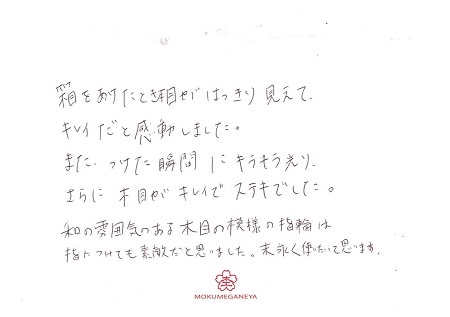 箱をあけたとき木目がはっきり見えて、
キレイだと感動しました。
また、つけた瞬間にキラキラ光り、
さらに木目がキレイでステキでした。
和の雰囲気のある木目の模様の指輪は
指につけても素敵だと思いました。末永く使いたいと思います。
MOKUMEGANEYA